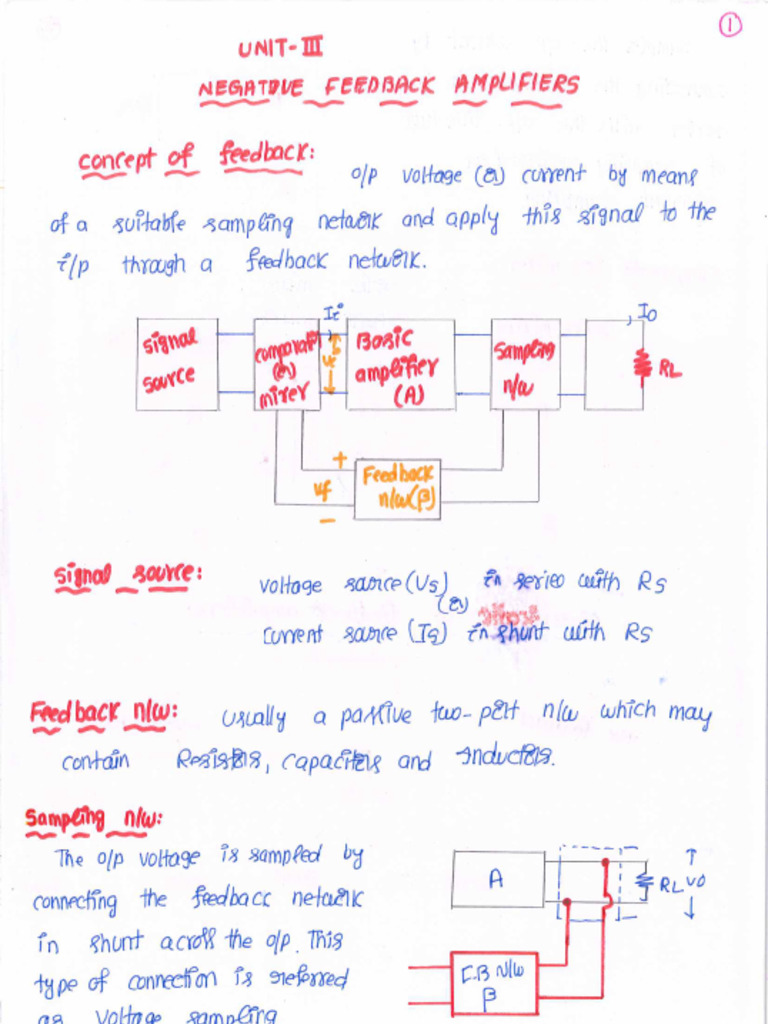 1
UNIT-III
NEGATIVE FEEDBACK AMPLIFIERS
concept of feedback:
o/p voltage (or) current by means
of a suitable sampling network and apply this signal to the
i/p through a feedback network.
Ii
Io
signal
source
(or)
mixer
Basic
amplifier
(A)
sampling
n/w
RL
+
Vf
-
Feedback
n/w(β)
signal source:
voltage source (Vs) in series with Rs
(or)
current source (Is) in shunt with Rs
Feedback n/w: usually a passive two-port n/w which may
contain Resistors, capacitors and inductors.
Sampling n/w:
The o/p voltage is sampled by
connecting the feedback network
in shunt across the o/p. This
type of connection is referred
as voltage sampling
A
RL
VO
F.B N/W
β